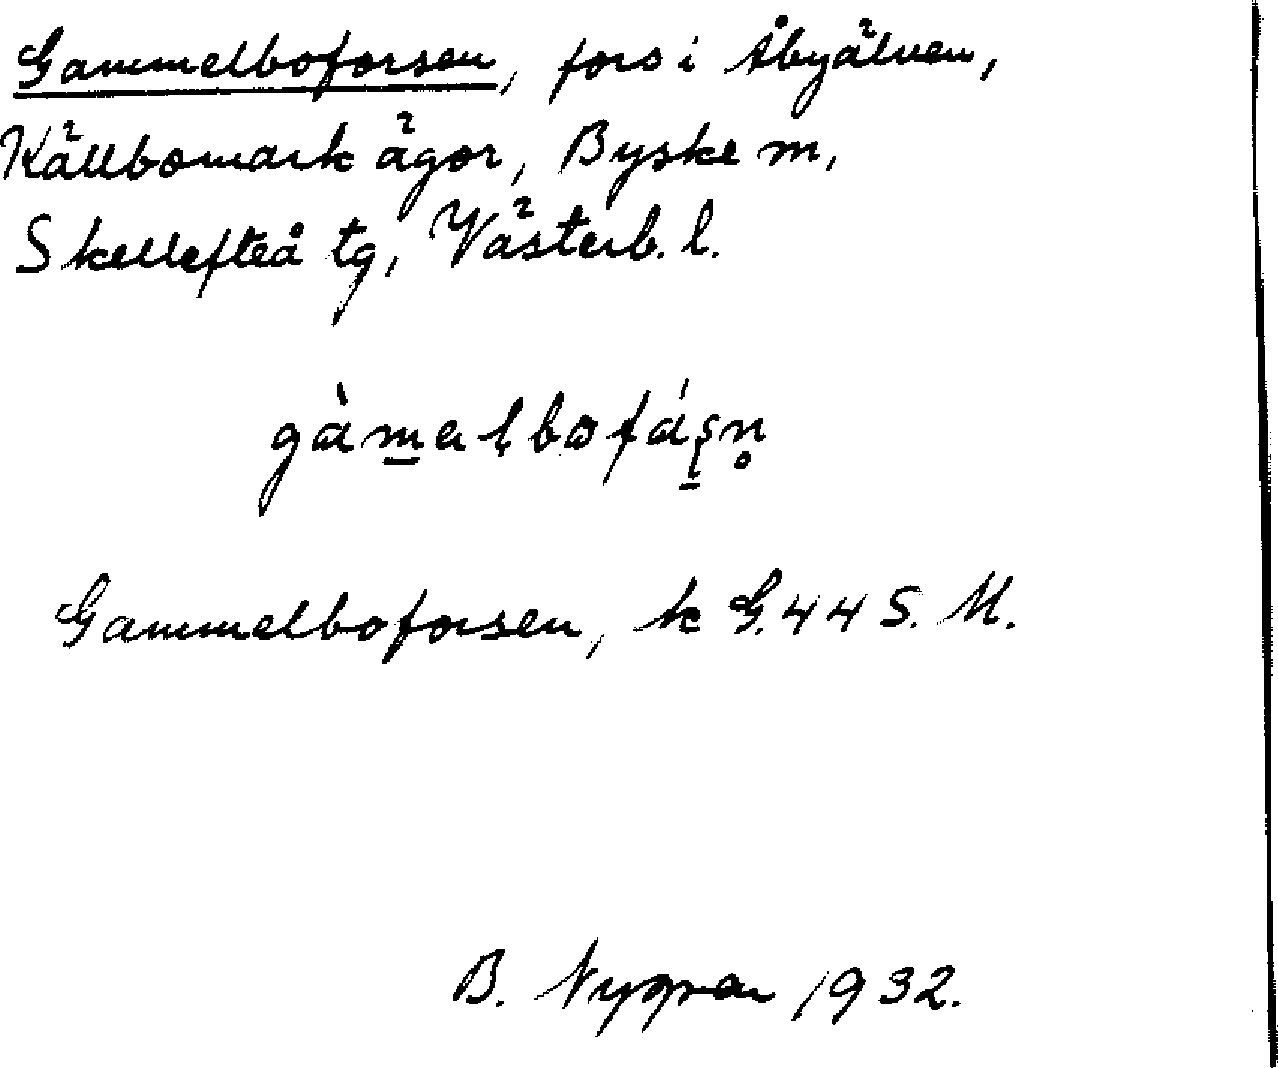 Gammelboforsen, fors i Åbyälven,
Källbomark ägor, Byske sn,
Skellefteå tg, Västerb. l.
gàmalbofáṣn̥
Gammelboforsen, k G. 44 S. M.
B. Nygren 1932.